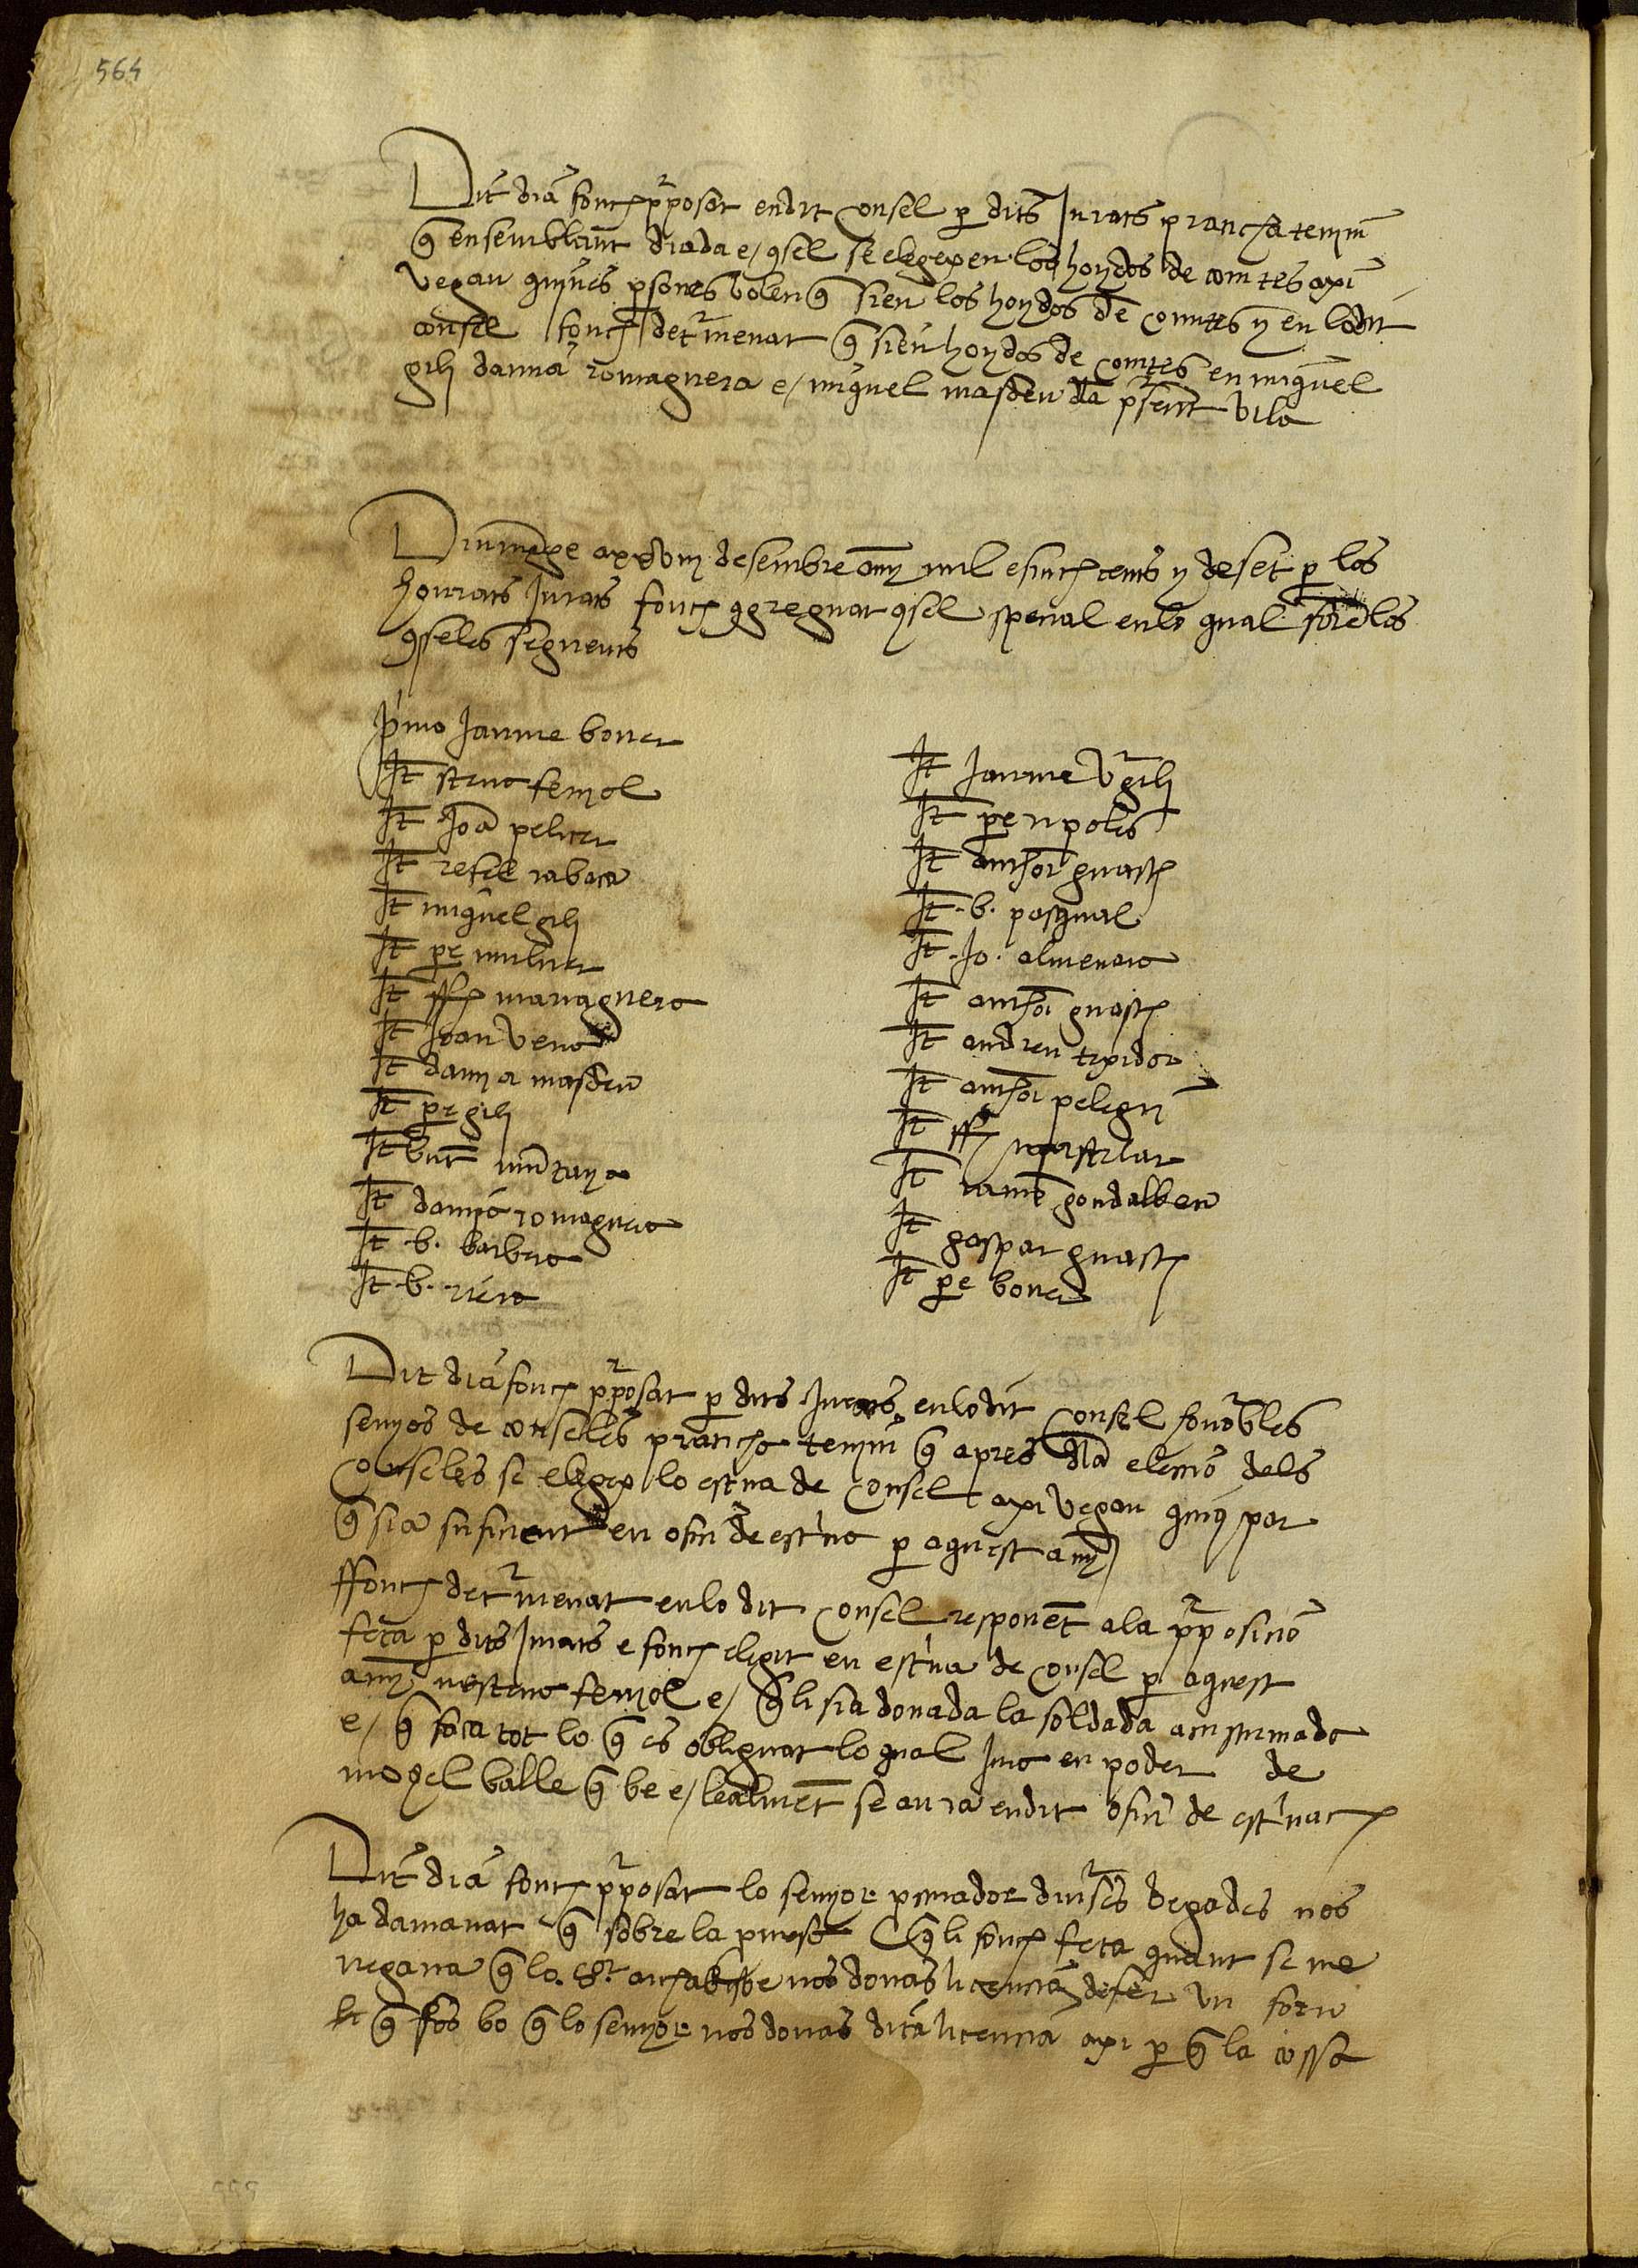 564
Dit dia fonch pposat en dit Consel p dits Jurats prancha tenim
q en semblant diada e / qsel se elegexen los hoydos de comtes axi
vegan quines psones volen q sien los hoydos de Comtes y en lo dit
consel fonch detmenat q sien hoydos de comtes en miguel
gili damia romaguera e / miguel masdeu dla psent vila
Diumege a xxvııı desembre any mil e sinch cents y deset p los
honrats Jurats fonch qgreguat qsel spesial en lo qual foren los
qseles seguents
pimo Jaume bover
It steve ferrjol
It Joa peliser
It refel rabaca
It miguel gili
It pe moliner
It ffco marraguera
It Joan vener
It damya masdeu
It pe gili
It butm mutanya
It damja romaguera
It b. barbera
It b. riera
It Jaume vgili
It pe ripoles
It anthoi guasch
It b. pasqual
It Jo. almenara
It anthoi guasch
It andreu texidor
It anthoi pelegri
It ffco
It Jaume gondalbeu
It gaspar guasch
It pe bover
Dit dia fonch pposat p dits Jurats en lo dit Consel honobles
senyos de conseles prancha tenim q apres dla elecsio dels
Conseles se elegex lo estiua de Consel axi vegan quius par
q sia sufisient en ofisi de estiua p aquest any
ffonch detmenat en lo dit Consel responet a la pposisio
feta p dits Jurats e fonch elegit en estiua de Consel p aquest
any nesteve ferrjol e / q li sia donada la soldada acustumada
e / q faca tot lo q es obliguat lo qual Jura en poder de
moxel balle q be e / lealmet se aura en dit ofisi de estiua ch
Dit dia fonch pposat lo senyor pcurador diuses vegades nos
ha damanat q sobre la pmesa q li fonch feta quant se me
negaua q lo sor archabisbe nos donas licencia de fer un forn
q fos bo q lo senyor nos donas dita licencia axi p q la cossa